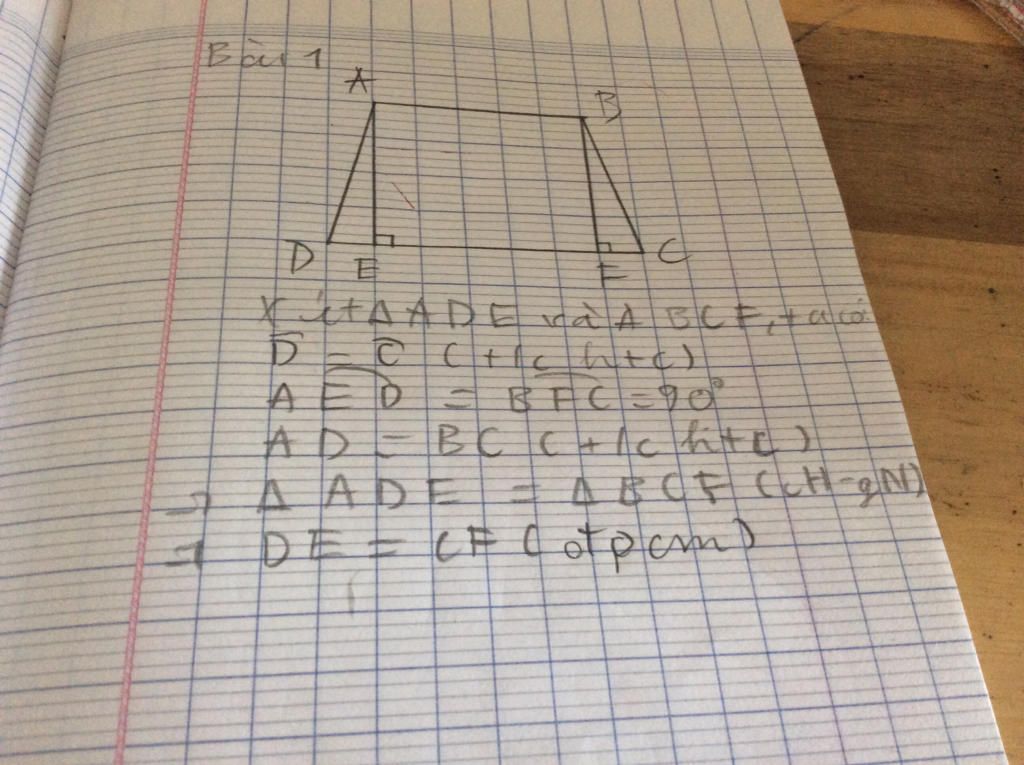 Bài 1
A
B
D E F C
Xét Δ ADE và Δ BCF, ta có
D̂ = Ĉ (t/c htc)
AÊD = BF̂C = 90°
AD = BC (t/c htc)
→ Δ ADE = Δ BCF (cH-gN)
→ DE = CF (đpcm)